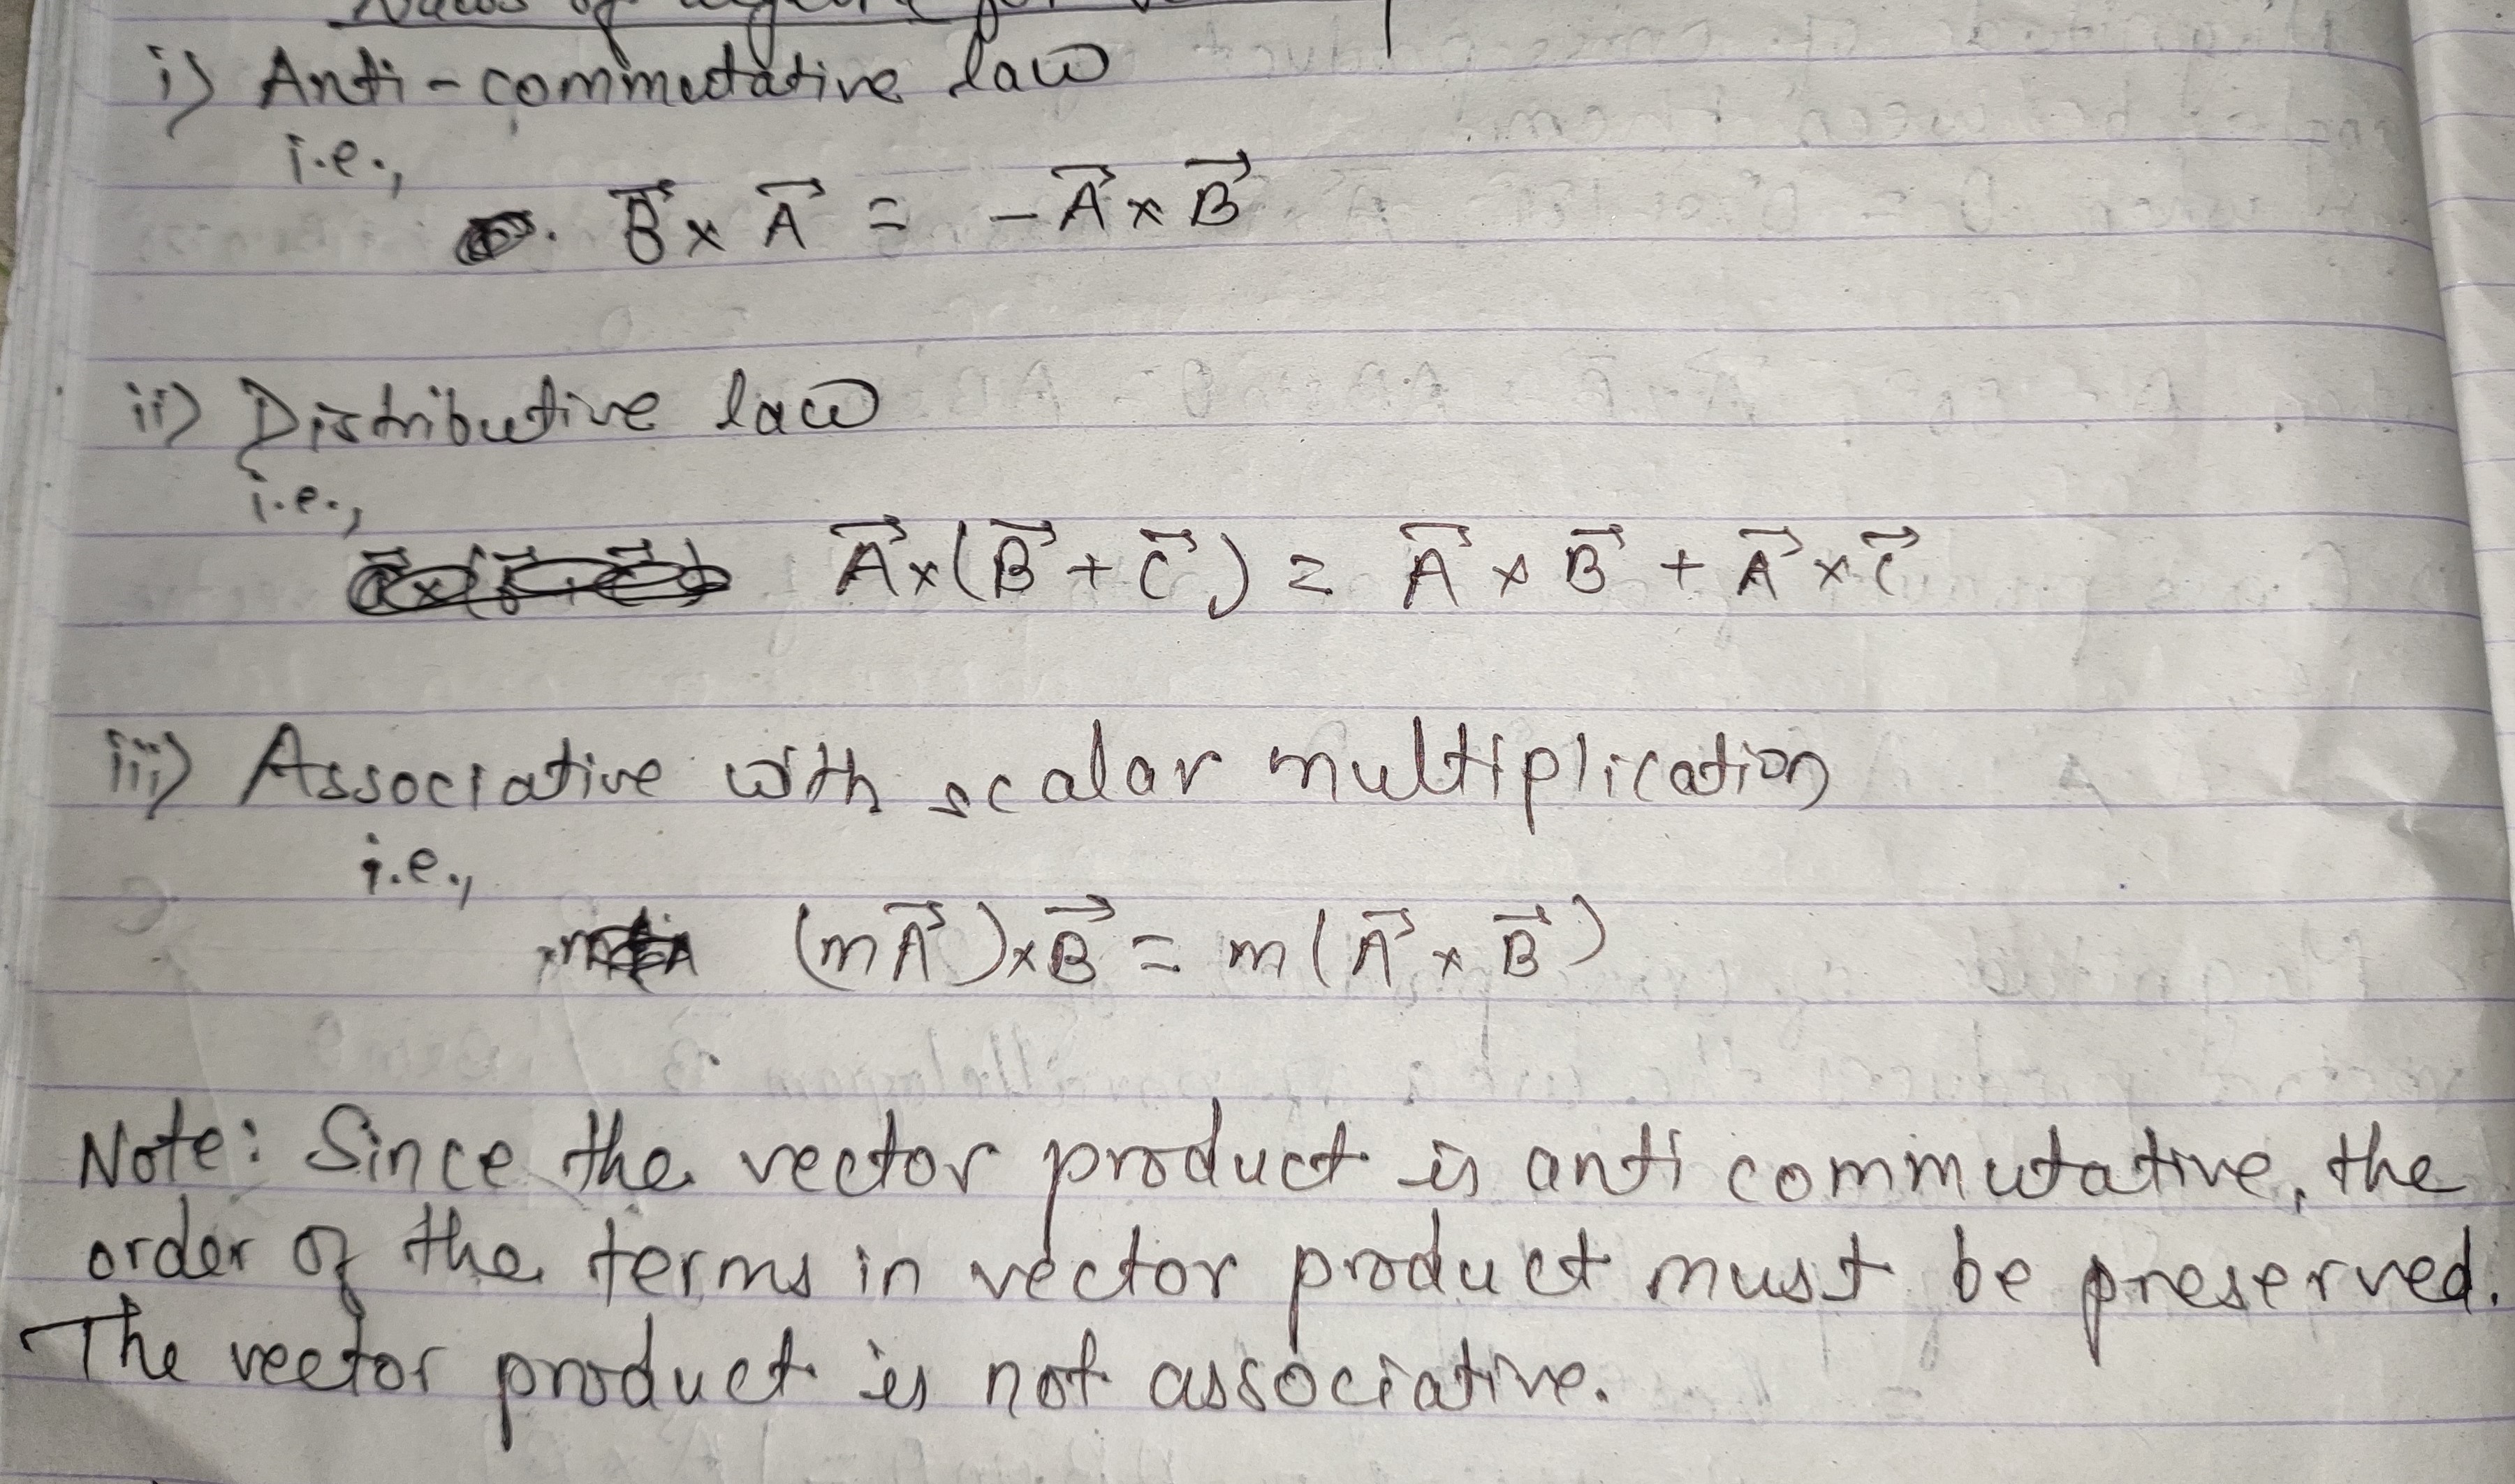 of algebra for
i) Anti-commutative law
i.e.,
B⃗ × A⃗ = -A⃗ × B⃗
ii) Distributive law
i.e.,
A⃗ × (B⃗ + C⃗) = A⃗ × B⃗ + A⃗ × C⃗
iii) Associative with scalar multiplication
i.e.,
(mA⃗) × B⃗ = m(A⃗ × B⃗)
Note: Since the vector product is anti commutative, the
order of the terms in vector product must be preserved.
The vector product is not associative.